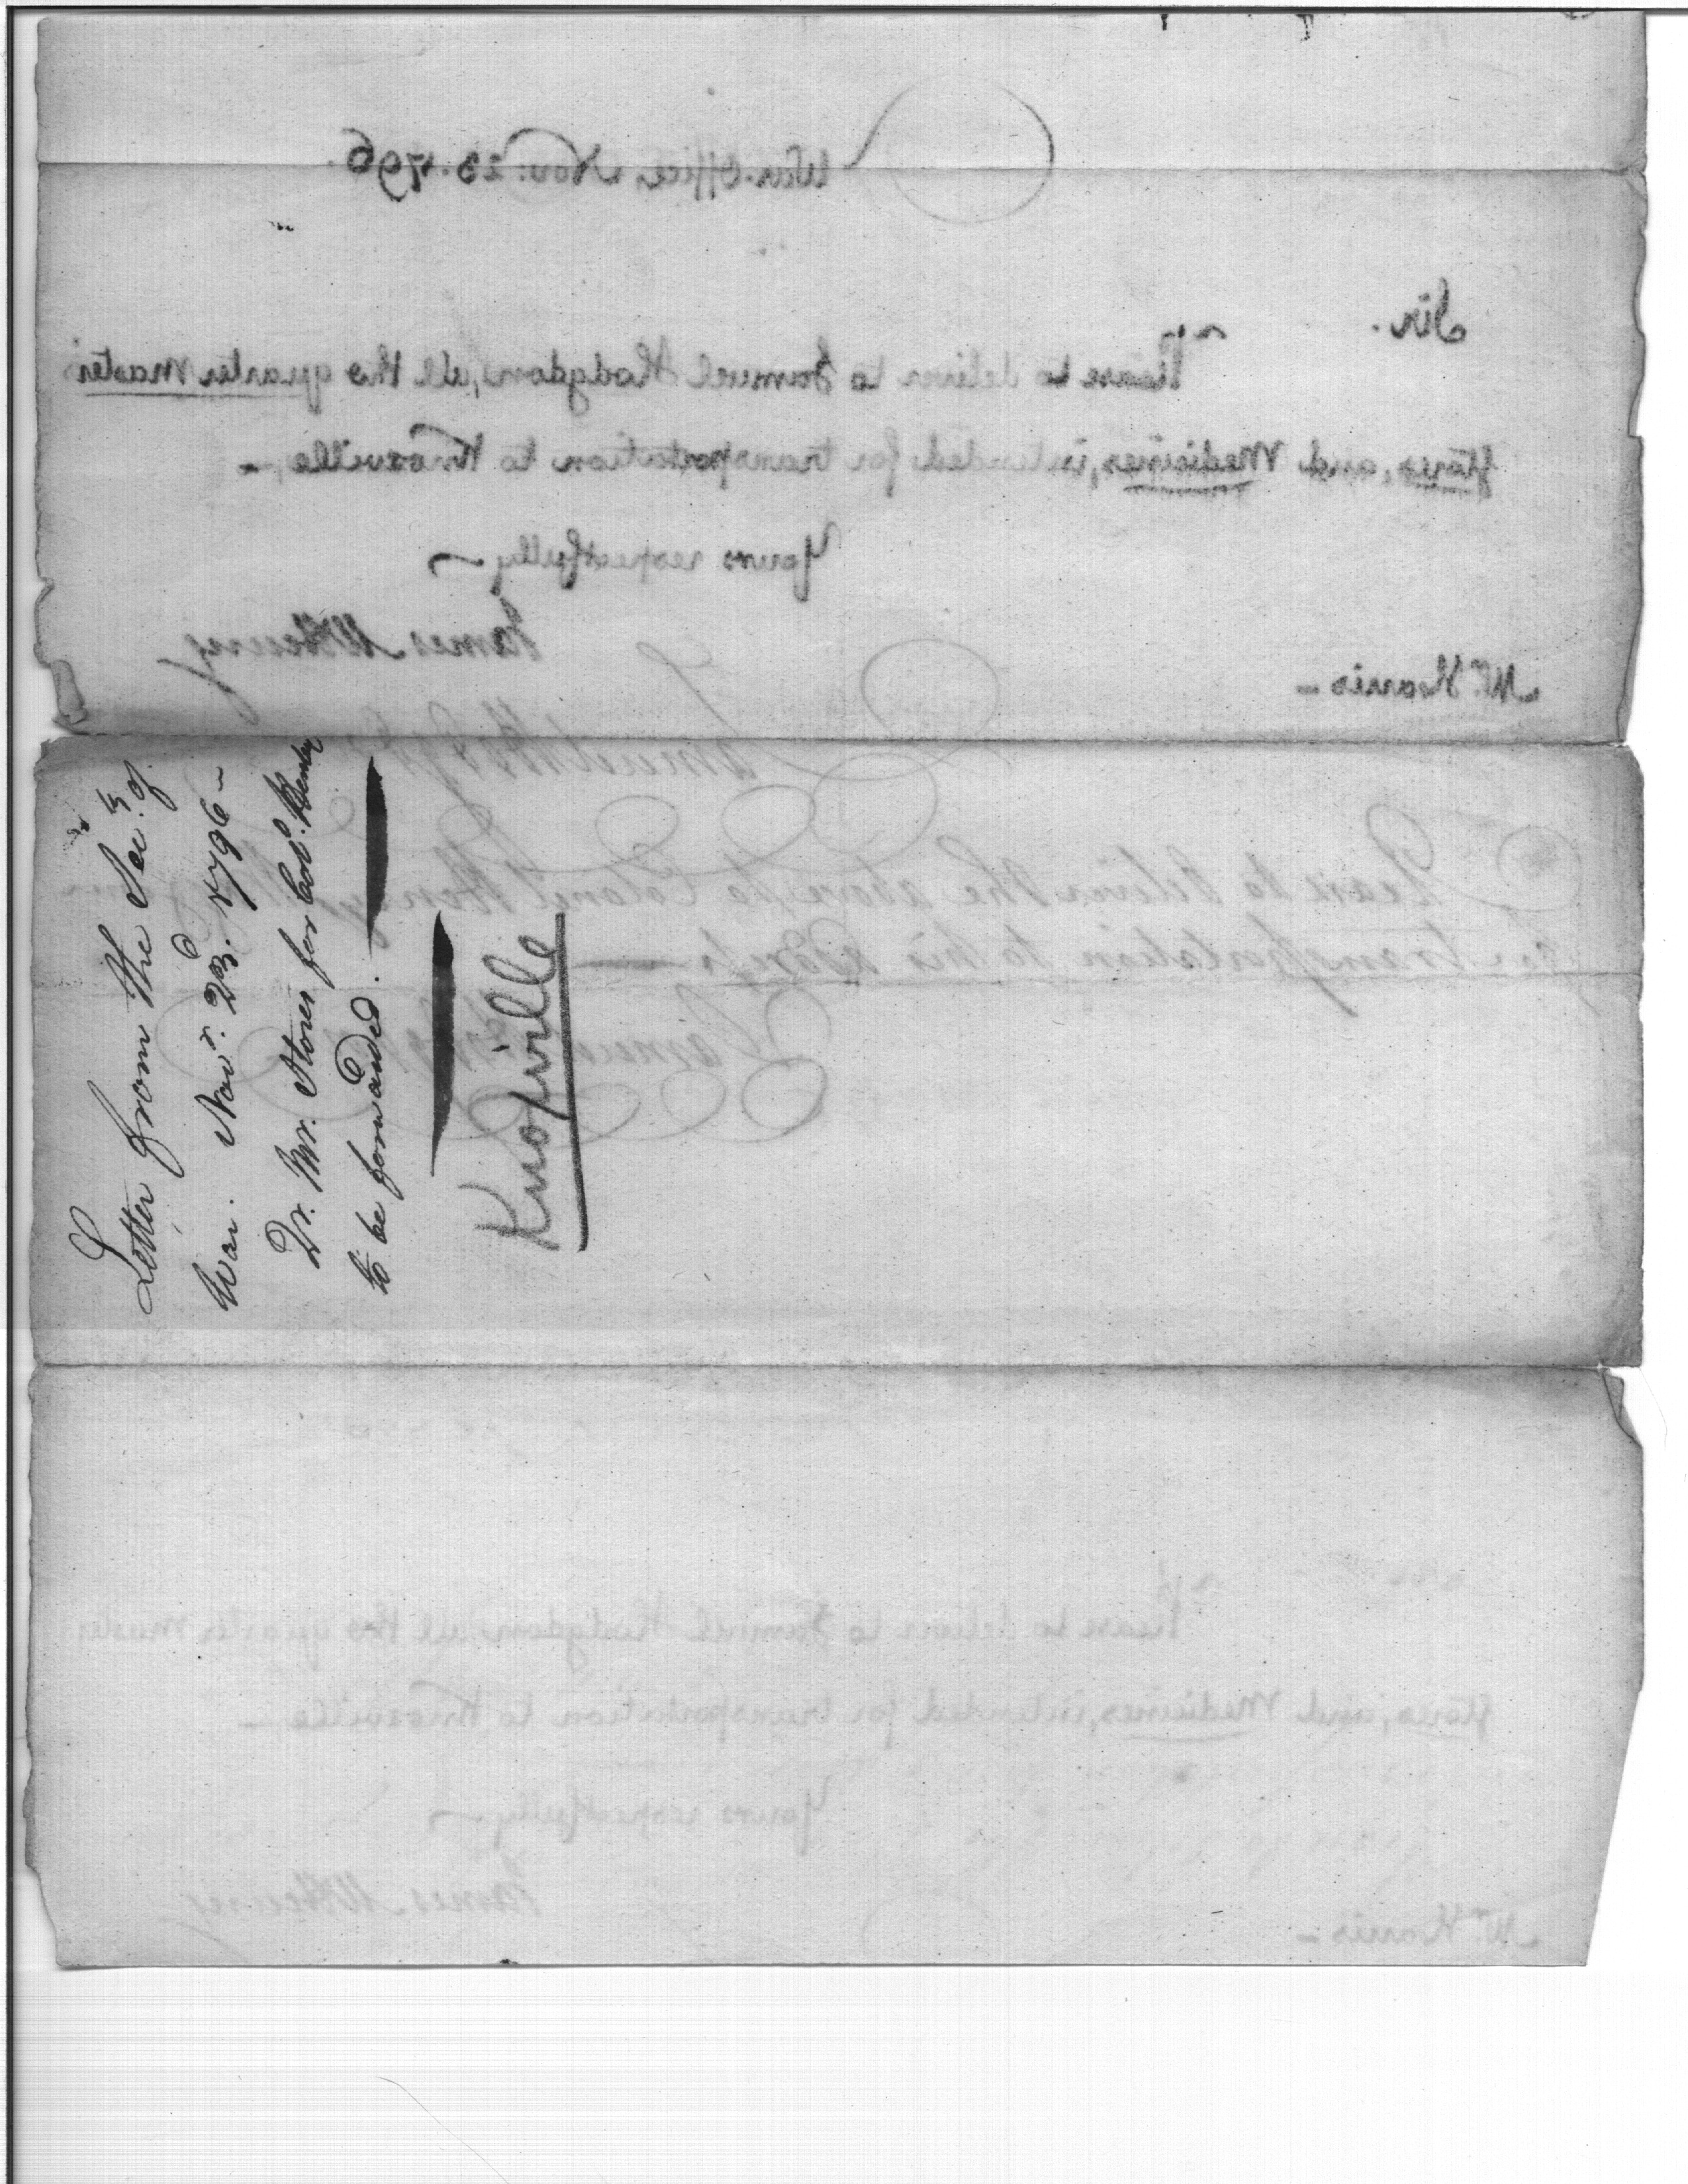 War office Nov: 23. 1796.
Sir.
Please to deliver to Samuel Hodgdon, all the quarter master
stores, and Medicines, intended for transportation to Knoxville –
Yours respectfully –
James McHenry
Mr. Harris –
Samuel Hodgdon
Please to deliver the above to Colonel Henley
for transportation to his
Letter from the Secty. of
War. Novr. 23d. 1796 –
Qr. Mr. Stores for Colo. Henley
to be forwarded.
Knoxville
Please to deliver to Samuel Hodgdon, all the quarter master
stores, and Medicines, intended for transportation to Knoxville –
Yours respectfully –
James McHenry
Mr. Harris –